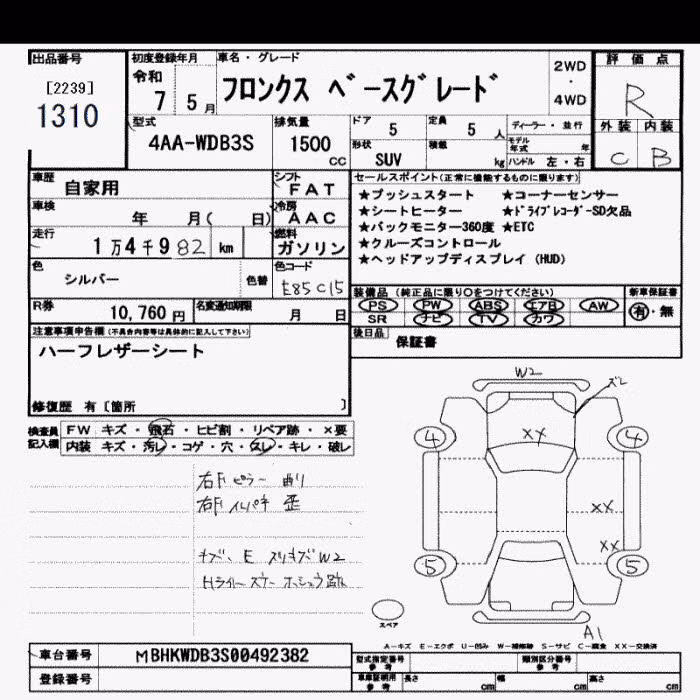 出品番号
[2239]
1310
初度登録年月
令和
7 5 月
車名・グレード
フロンクス ベースグレード
2WD
・
4WD
評価点
R
外装 内装
C B
型式
4AA-WDB3S
排気量
1500
CC
ドア
5
定員
5 人
形状
SUV
積載
kg
ディーラー・並行
モデル年式 年
ハンドル 左・右
車歴
自家用
シフト
FAT
車検
年 月( 日)
冷房
AAC
走行
1万4千982 km
燃料
ガソリン
色
シルバー
色替
色コード
E85C15
R券
10,760 円
名変通知期限
月 日
セールスポイント(正常に機能するものに限ります)
★プッシュスタート ★コーナーセンサー
★シートヒーター ★ドライブレコーダーSD欠品
★バックモニター360度 ★ETC
★クルーズコントロール
★ヘッドアップディスプレイ(HUD)
装備品(純正品に限り○をつけてください)
PS PW ABS エアB AW
SR ナビ TV カワ
新車保証書
有・無
後日品
保証書
注意事項申告欄(不具合内容等は具体的に記入して下さい)
ハーフレザーシート
修復歴 有〔箇所 〕
検査員
記入欄
FW キズ・飛石・ヒビ割・リペア跡・×要
内装 キズ・汚レ・コゲ・穴・スレ・キレ・破レ
右Fピラー 曲り
右F インパネ 歪
キズ、E スリキズW2
W2
ズレ
4 4
XX
XX
XX
5 5
A1
スペア
A-キズ E-エクボ U-凹み W-補修跡 S-サビ C-腐食 XX-交換済
車台番号
MBHKWDB3S00492382
登録番号
型式指定番号
参考
類別区分番号
参考
車庫証明用
参考
長さ cm 幅 cm 高さ cm